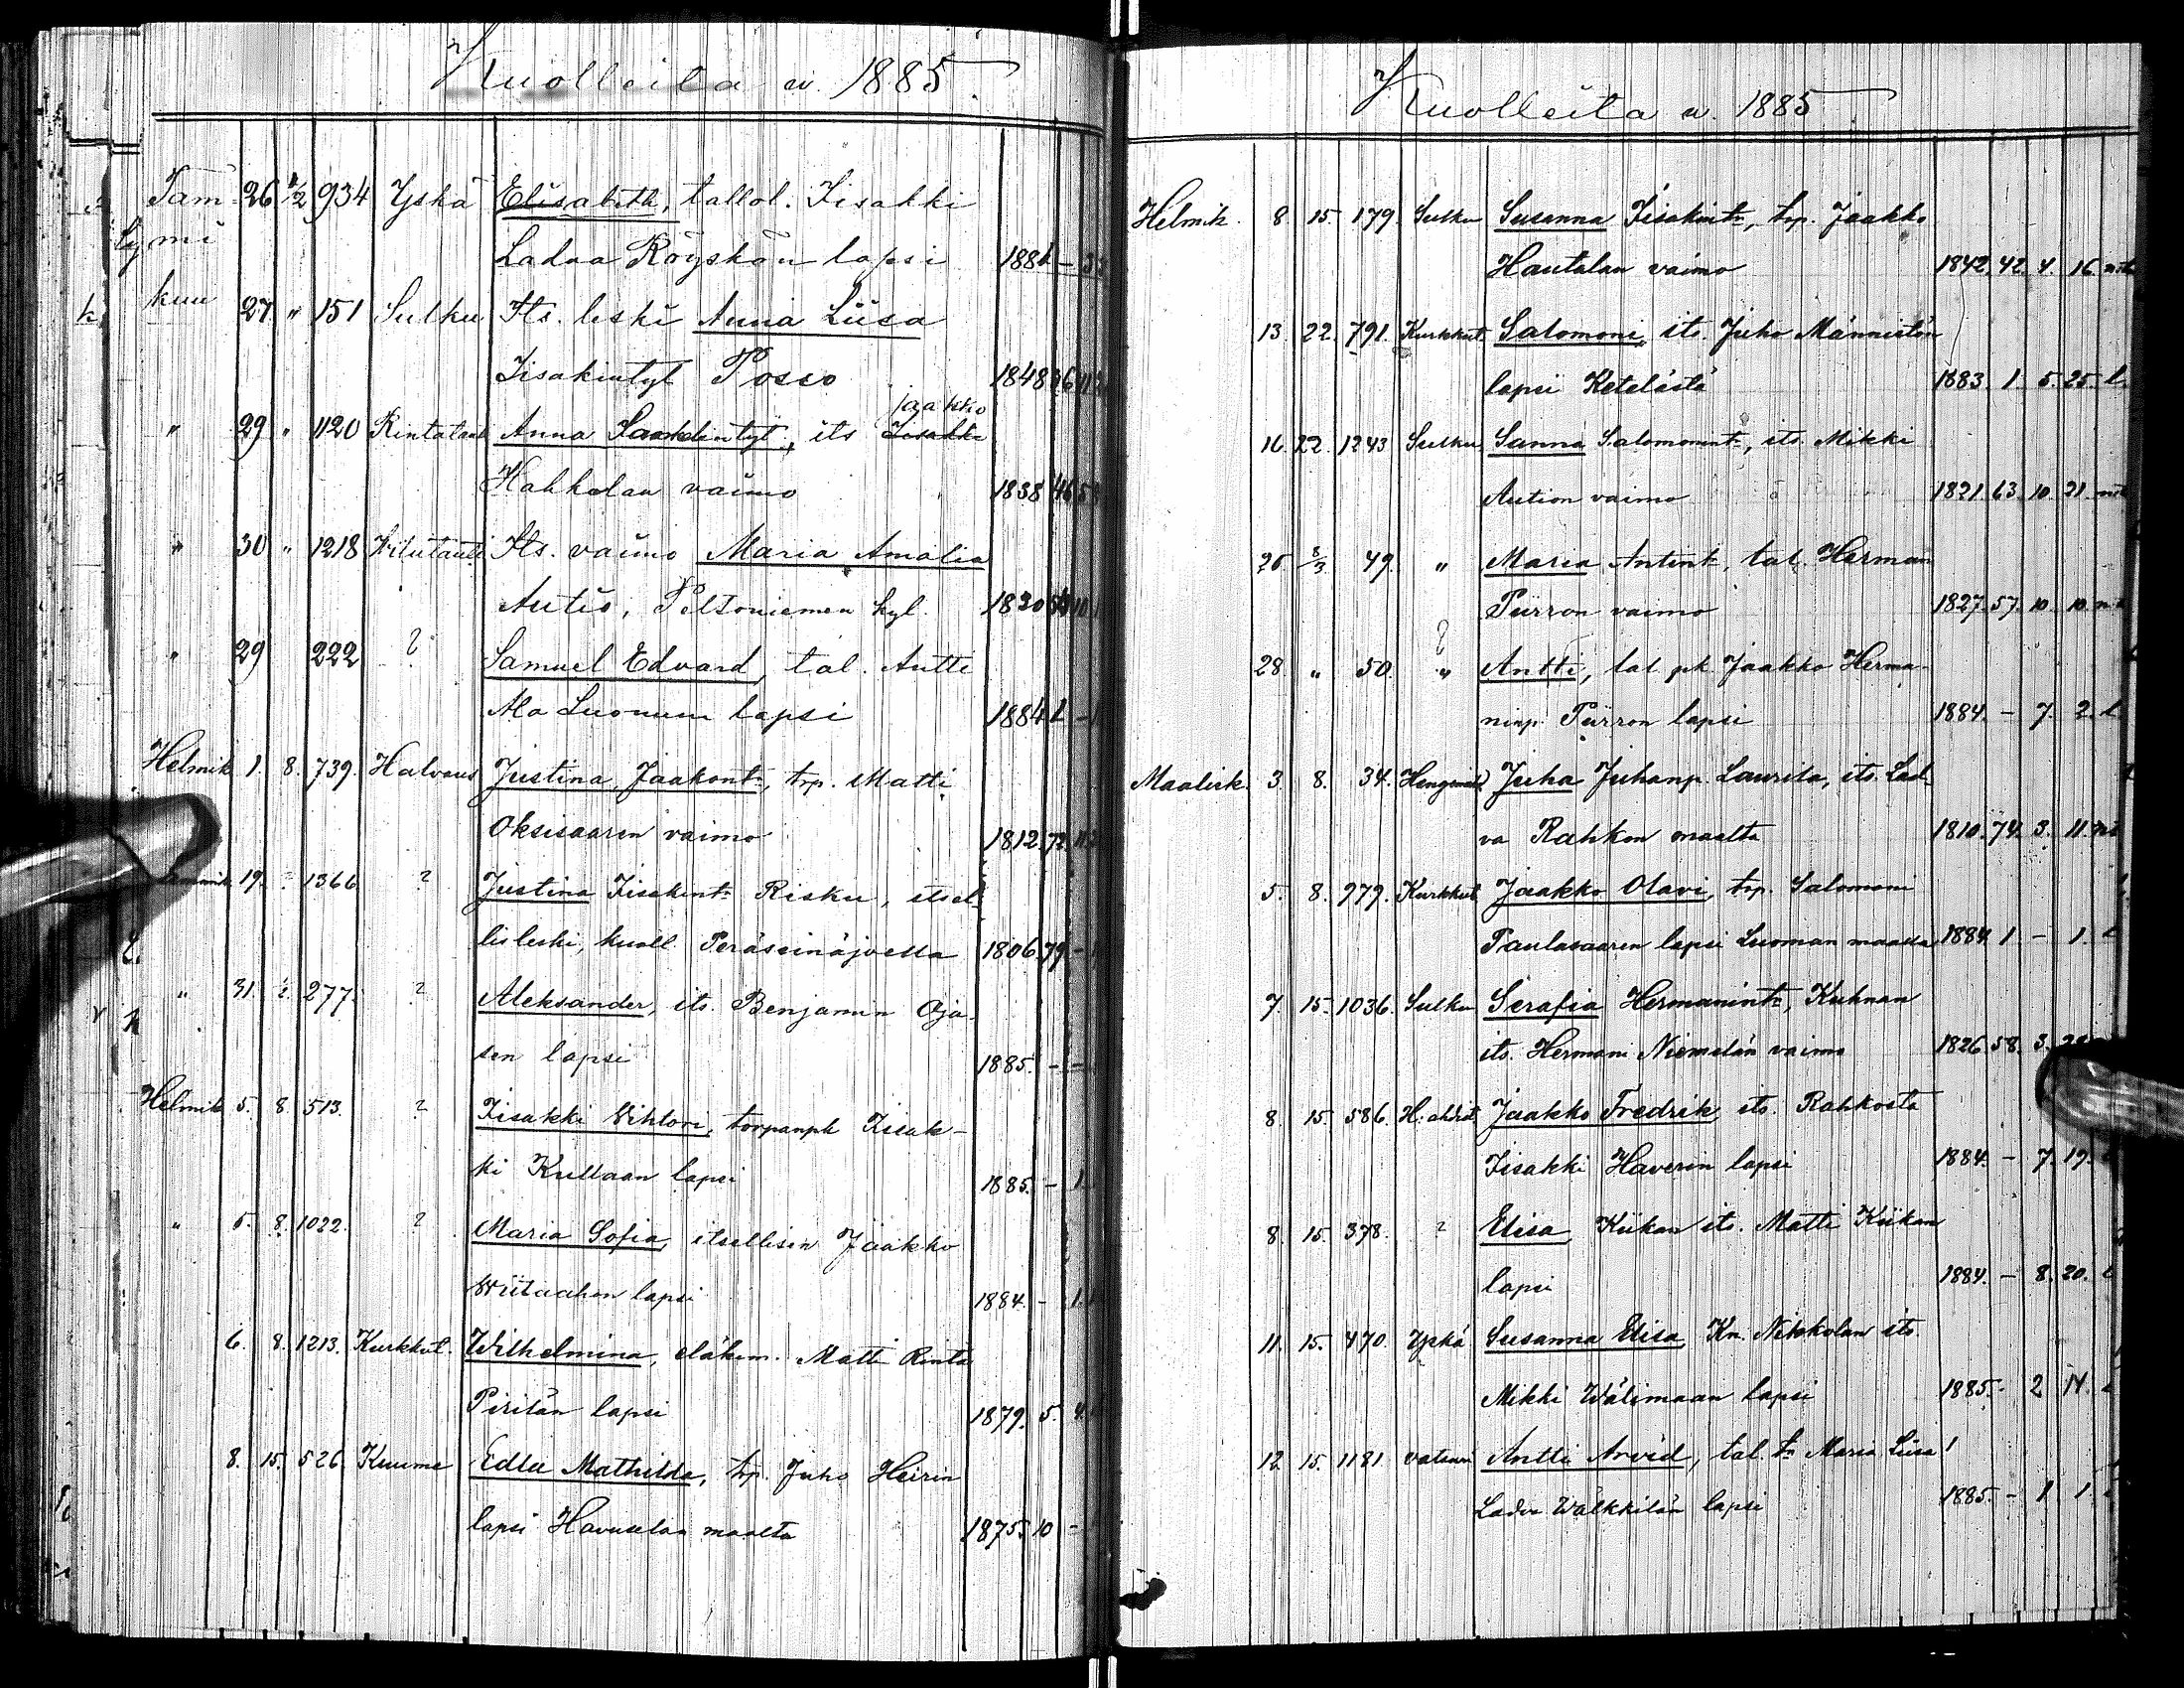 Kuolleita w. 1885.
Tam 26 1/2 934 Yskä Elisabeth, tallol. Iisakki
mi Ladva Röyskön lapsi 1881 -
kuu 27 " 151 Sulku Its. leski Anna Liisa
Iisakintyt 1848 36
" 29 " 1120 Rintataut Anna its Jaakko
Hahkolan vaimo 1838 46
" 30 " 1218 Its. vaimo Maria Amalia
Autio, Peltoniemen kyl. 1830 54 10
" 29 222 ? Samuel Edvard, tal. Antti
Ala Luomun lapsi 1884 1 -
Helmik 1. 8. 739. Halvaus Justina Jaakont:, trp. Matti
Oksisaaren vaimo 1812. 72.
19. 1366. ? Justina Iisakint: Risku, itsel-
lis leski, kuoll Peräseinäjoella 1806. 79. -
" 31. 277. ? Aleksander, its. Benjamin Oja-
sen lapsi 1885. - -
Helmik 5. 8. 513. ? Iisakki Wihtori, torpanph Iisak-
ki Kullaan lapsi 1885. - 1.
" 5. 8. 1022. ? Maria Sofia, itsellisen Jaakko
Wiitaahon lapsi 1884. - 1.
6. 8. 1213. Kurkkut. Wilhelmina, eläkem. Matti Rinta
Piritän lapsi 1879. 5. 4.
8. 15. 526. Kuume Edla Mathilda, trp. Juho Heirin
lapsi Havuselan maalta 1875. 10 -
Kuolleita w. 1885.
Helmik. 8. 15. 179. Sulku Susanna Iisakint:, trp. Jaakko
Hautalan vaimo 1842. 42. 4. 16.
13. 22. 791. Kurkkut. Salomoni, its. Juho Männistön
lapsi Ketelästä 1883. 1. 5. 25. l.
16. 22. 1243 Sulku Sanna Salomonint:, its. Mikki
Aution vaimo 1821. 63. 10. 21.
26 8/3 49. " Maria Antint:, tal. Herman
Piirron vaimo 1827. 57. 10. 10.
28 " 50. " ? Antti, tal. pk. Jaakko Herma-
ninp. Piirron lapsi 1884. - 7. 2. l
Maalisk. 3. 8. 34. Juha Juhanp. Laurila, its. Lad-
va Rahkon maalta 1810. 74. 3. 11.
5. 8. 979. Kurkkut. Jaakko Olavi, trp. Salomoni
Paulasaaren lapsi Luoman maalta 1884. 1 - 1.
7. 15. 1036. Sulku Serafia Hermanint:, Kuhnan
its. Hermani Niemelän vaimo 1826. 58. 3.
8. 15. 586. H. ahdist Jaakko Fredrik, its. Rahkosta
Iisakki Haverin lapsi 1884. - 7. 19.
8. 15. 378. ? Elisa, Kiikan its. Matti Kiikan
lapsi 1884. - 8. 20.
11. 15. 470. Yskä Susanna Elisa, Kn. Nikkolan its.
Mikki Wälimaan lapsi 1885. - 2 14.
12. 15. 1181 vatsuri Antti Arvid, tal. tr Maria Liisa
Ladva Wälkkilän lapsi 1885. - 1 1